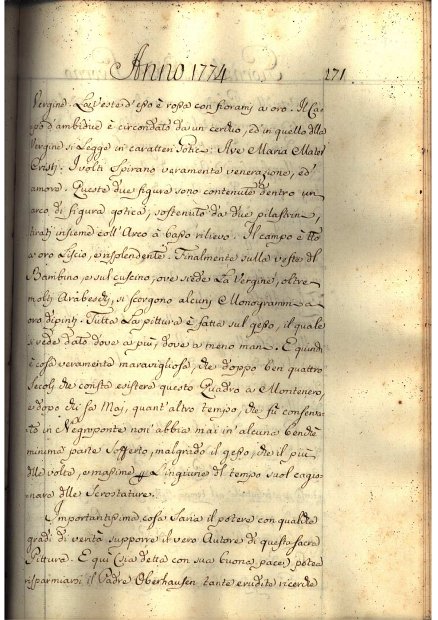 Anno 1774
271
Vergine. La Veste d'esso è rossa con fiorami a oro. Il Ca-
po d'ambidue è circondato da un cerchio, ed in quello della
Vergine si Legge in caratteri Gotici. Ave Maria Mater
Cristi. I volti spirano veramente venerazione, ed
amore. Queste due figure sono contenute dentro un
arco di figura gotica, sostenuto da due pilastrini,
tirati insieme coll'Arco a basso rilievo. Il campo è tto
a oro Liscio, e risplendente. Finalmente sulla veste del
Bambino, e sul cuscino, ove siede La Vergine, oltre
molti Arabeschi, si scorgono alcuni Monogrammi a
oro dipinti. Tutta La pittura è fatta sul gesso, il quale
si vede dato dove a più, dove a meno mani. E quindi
è cosa veramente maravigliosa, che doppo ben quattro
Secoli che consta esistere questo Quadro a Montenero,
e dopo chi sa Mai, quant'altro tempo, che fù conserva-
to in Negroponte non' abbia mai in' alcuna benchè
minima parte Sofferto, malgrado il gesso, che il più
delle volte, e massime p L'ingiurie del tempo suol cagio-
nare delle Scrostature.
Importantissima cosa Saria il potere con qualche
gradi di verità supporre il vero Autore di questa sacra
Pittura. E qui (sia detta con sua buona pace) potea
risparmiarsi il Padre Oberhausen tante erudite ricerche